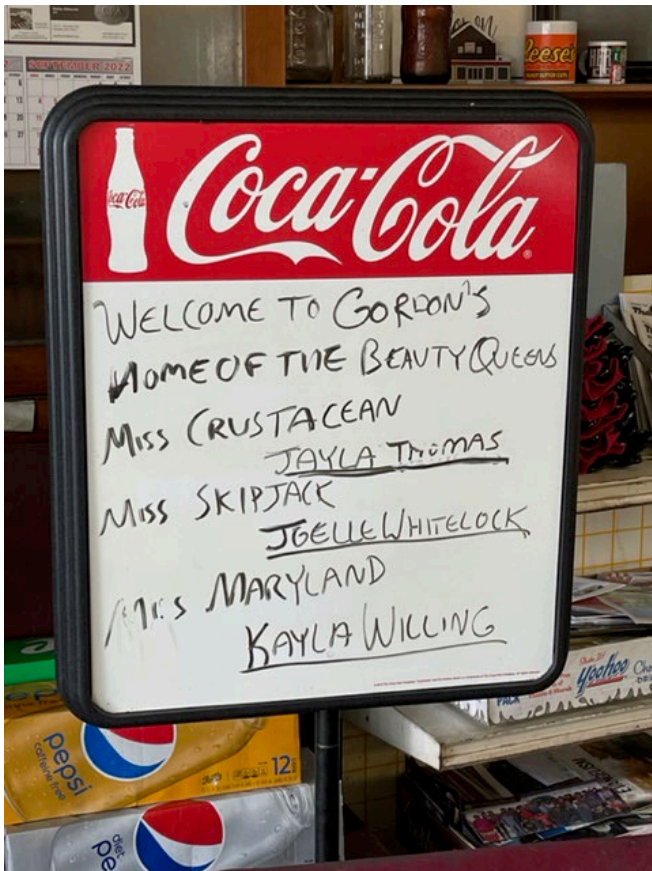 SEPTEMBER 2022
Reese's
Coca-Cola
Coca-Cola®
WELCOME TO GORDON'S
HOME OF THE BEAUTY QUEENS
MISS CRUSTACEAN
JAYLA THOMAS
MISS SKIPJACK
JOELLE WHITELOCK
MRS MARYLAND
KAYLA WILLING
YooHoo
pepsi
caffeine free
12
diet
pe